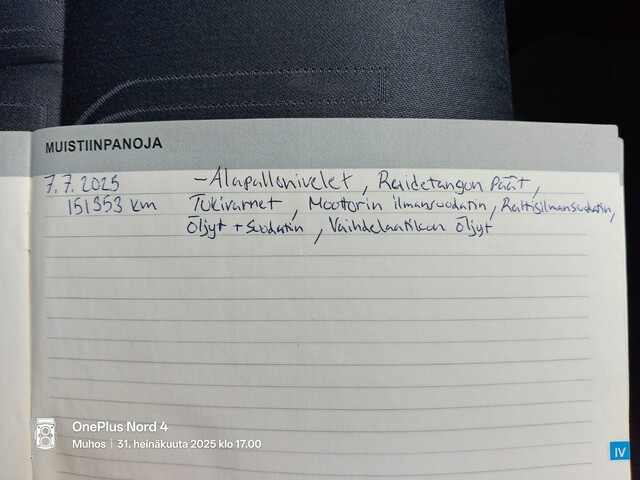 MUISTIINPANOJA
7.7.2025 - Alapallonivelet, Raidetangon päät,
151353 km Tukivarret, Moottorin ilmansuodatin, Raitisilmansuodatin,
Öljyt + Suodatin, Vaihdelaatikon öljyt
OnePlus Nord 4
Muhos | 31. heinäkuuta 2025 klo 17.00
IV